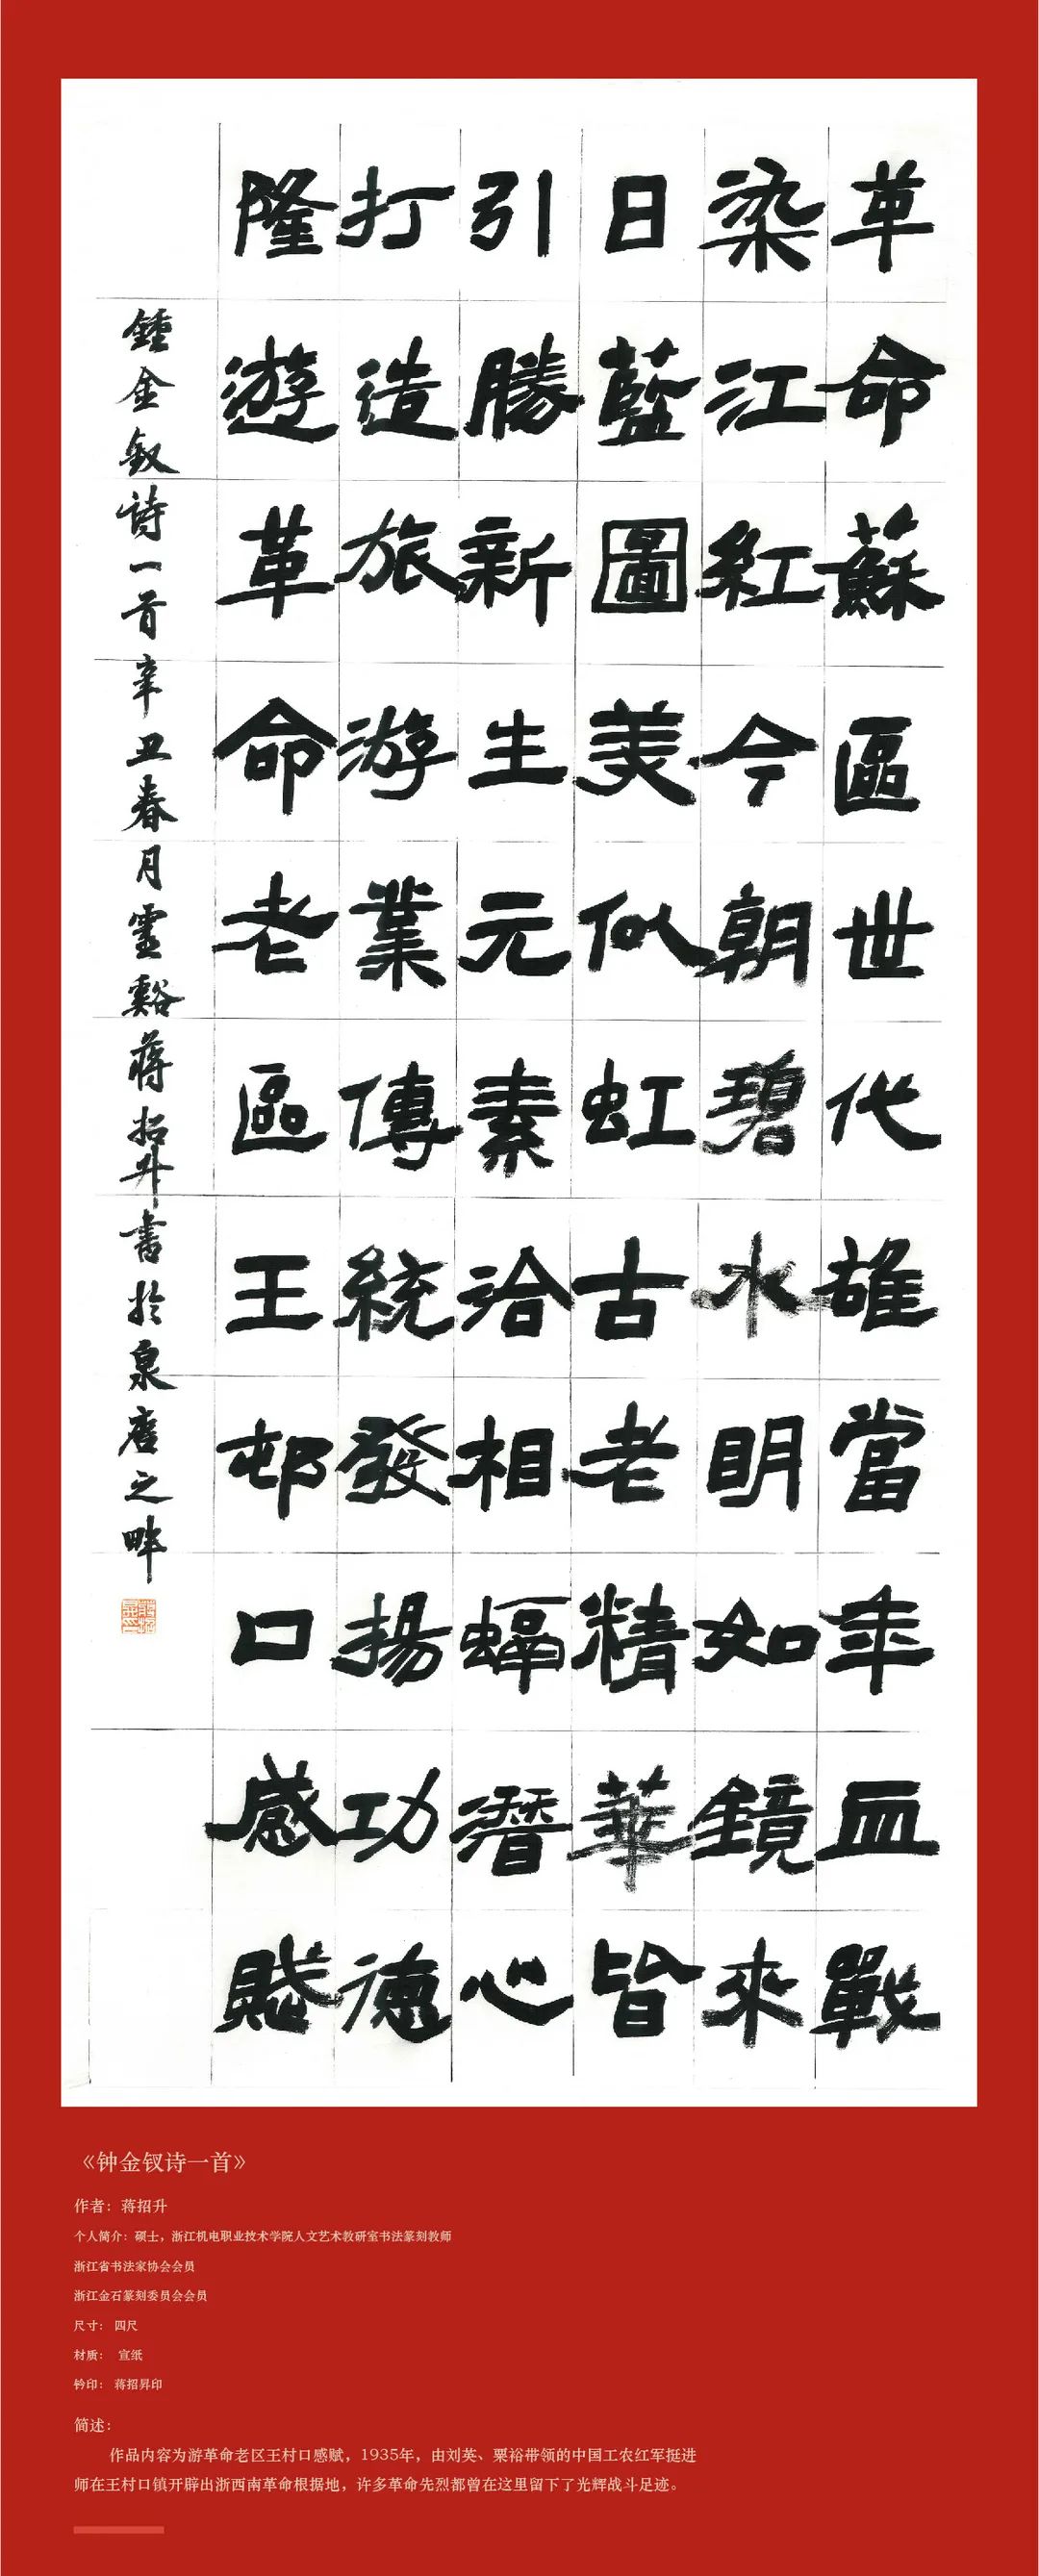 革命蘇區世代雄當年血戰
染江紅今朝碧水明如鏡來
日藍圖美似虹古老精華皆
引勝新生元素洽相螎潛心
打造旅游業傳統發揚功德
隆遊革命老區王邨口感賦
鍾金釵詩一首辛丑春月靈谿蔣招升書於泉唐之畔
蔣招昇印
《钟金钗诗一首》
作者：蒋招升
个人简介：硕士，浙江机电职业技术学院人文艺术教研室书法篆刻教师
浙江省书法家协会会员
浙江金石篆刻委员会会员
尺寸： 四尺
材质： 宣纸
钤印： 蒋招昇印
简述：
作品内容为游革命老区王村口感赋，1935年，由刘英、粟裕带领的中国工农红军挺进
师在王村口镇开辟出浙西南革命根据地，许多革命先烈都曾在这里留下了光辉战斗足迹。